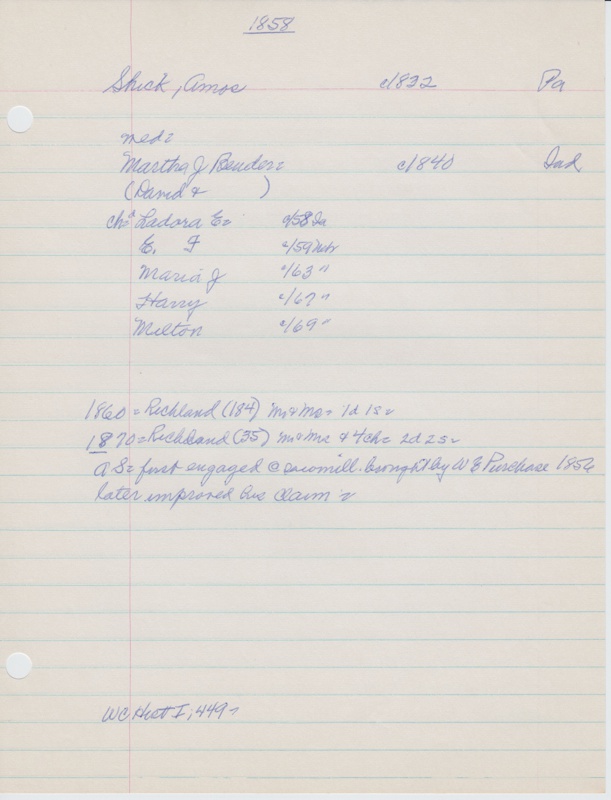 1858
Shick, Amos c1832 Pa
med=
Martha J Bender= c1840 Ind
(David & )
ch= Ladora E= c/58 Ia
E. F c/59 Nebr
Maria J c/63 "
Harry c/67 "
Milton c/69 "
1860 = Richland (184) Mr & Mrs = 1d 1s =
1870 = Richland (35) Mr & Mrs & 4ch = 2d 2s =
A S = first engaged @ sawmill brought by W E Purchase 1856
later improved his claim =
WC Hist I; 449 =